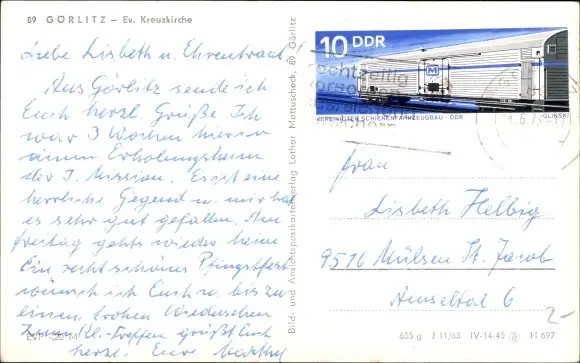 89 GÖRLITZ – Ev. Kreuzkirche
Liebe Lisbeth u. Ehrentraut
Aus Görlitz sende ich
Euch herzl. Grüße. Ich
war 3 Wochen hier in
einem Erholungsheim
der J. Mission. Es ist eine
herrliche Gegend u. mir hat
es sehr gut gefallen. Am
Freitag gehts wieder heim
Ein recht schönes Pfingstfest
wünsch ich Euch u. bis zu
einem frohen Wiedersehen
zum Kl.-Treffen grüßt Euch
herzl. Eure
Bild- und Ansichtspostkartenverlag Lothar Mattuscheck, 89 Görlitz
10 DDR
M
VEREINIGTER SCHIENENFAHRZEUGBAU · DDR
GLINSKI
rechtzeitig
Frau
Lisbeth Helbig
9516 Mülsen St. Jacob
Amseltal 6
2-
655 g J 11/63 IV-14-45 H 697